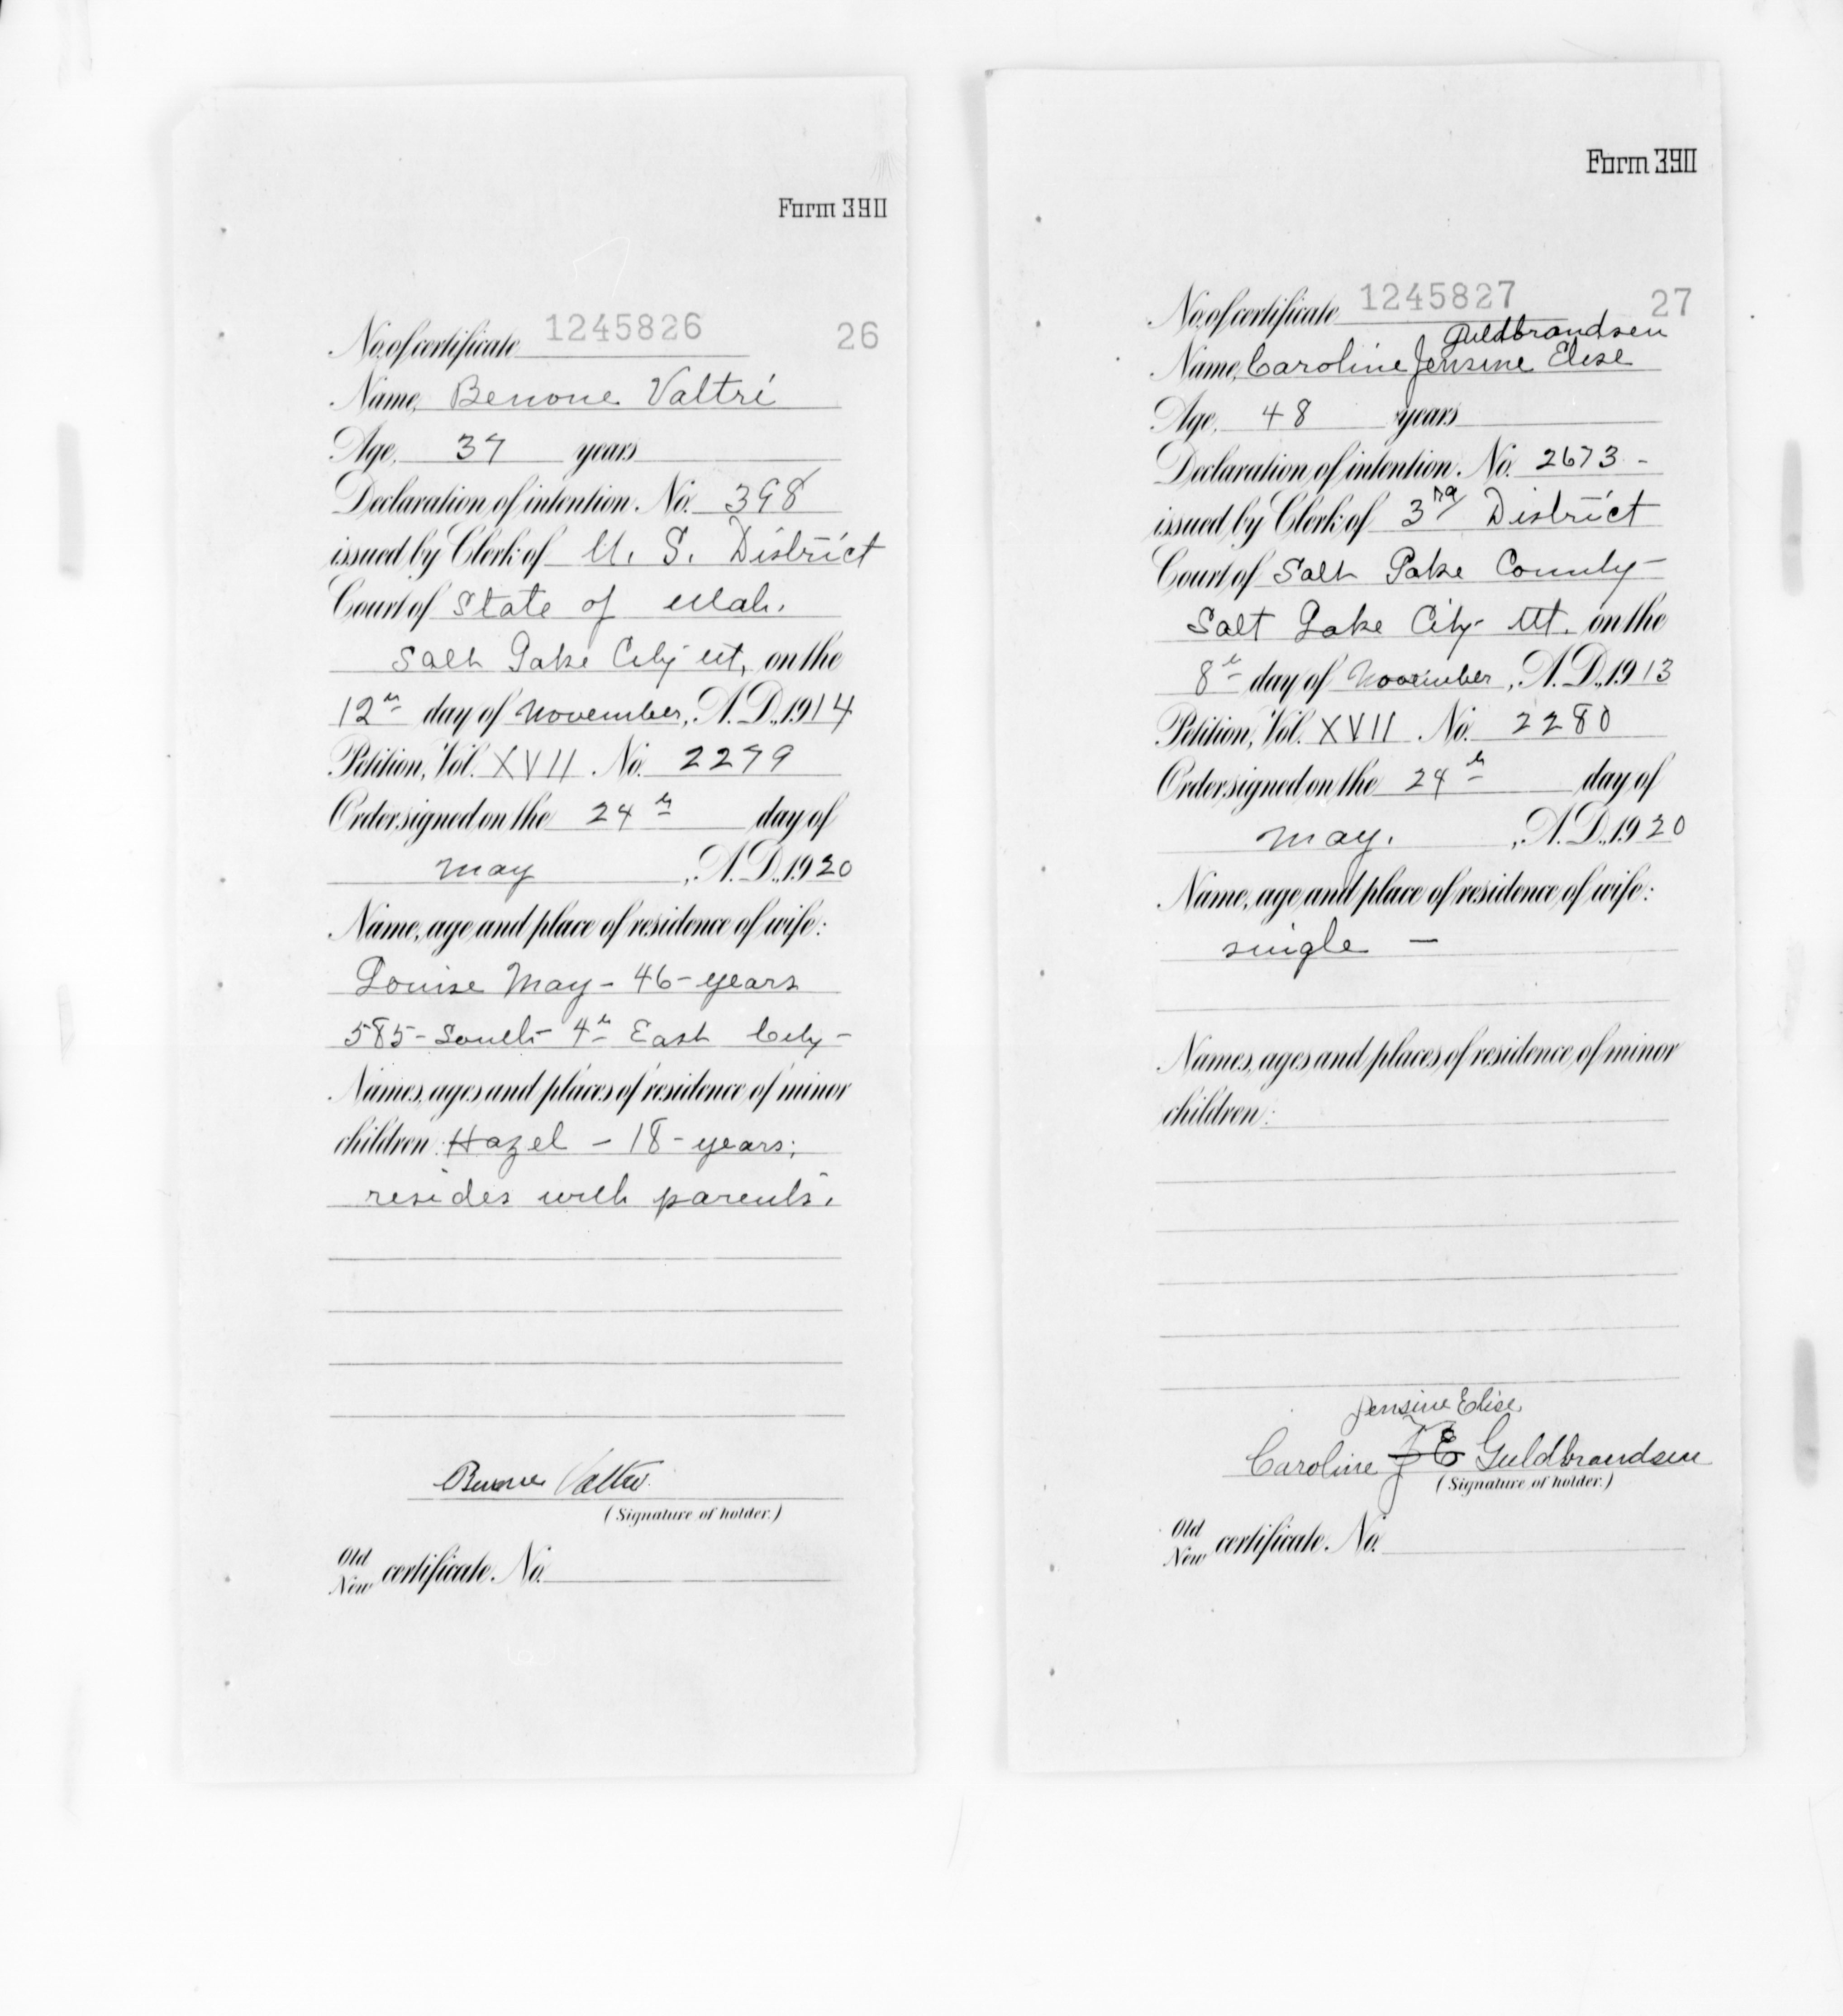 Form 390
No. of certificate 1245826 26
Name, Benone Valtri
Age, 37 years
Declaration of intention. No. 398
issued by Clerk of U. S. District
Court of State of Utah.
Salt Lake City Ut, on the
12th day of November, A.D., 1914
Petition, Vol. XVII No. 2279
Order signed on the 24th day of
May, A.D., 1920
Name, age and place of residence of wife:
Louise May - 46 - years
585 - South - 4th East City -
Names, ages and places of residence of minor
children: Hazel - 18 - years;
resides with parents.
Benone Valtri
(Signature of holder.)
Old
New certificate. No.
Form 390
No. of certificate 1245827 27
Guldbrandsen
Name, Caroline Jensine Elise
Age, 48 years
Declaration of intention. No. 2673 -
issued by Clerk of 3rd District
Court of Salt Lake County -
Salt Lake City - Ut. on the
8th day of November, A.D., 1913
Petition, Vol. XVII No. 2280
Order signed on the 24th day of
May., A.D., 1920
Name, age and place of residence of wife:
single -
Names, ages and places of residence of minor
children:
Jensine Elise
Caroline J E Guldbrandsen
(Signature of holder.)
Old
New certificate. No.